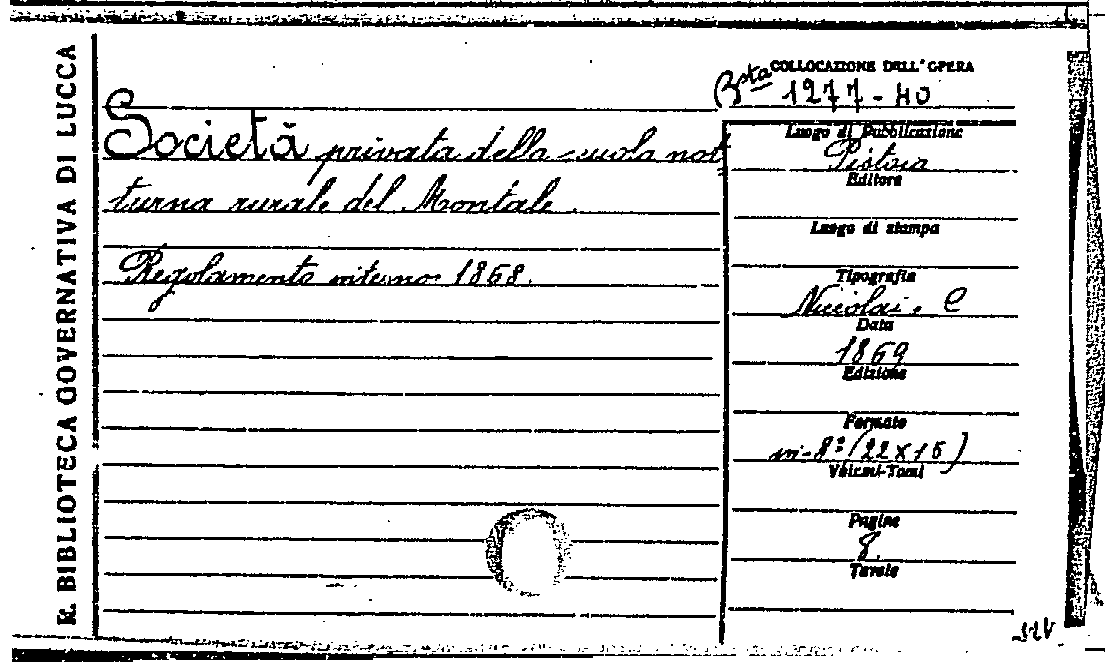 R. BIBLIOTECA GOVERNATIVA DI LUCCA
COLLOCAZIONE DELL'OPERA
Bsta 1277-40
Società privata della scuola not
turna rurale del Montale.
Regolamento interno 1868.
Luogo di Pubblicazione
Pistoia
Editore
Luogo di stampa
Tipografia
Niccolai. C
Data
1869
Edizione
Formato
in-8º (22X15)
Volumi-Tomi
Pagine
8.
Tavole